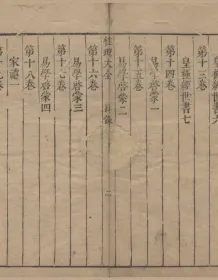 皇極經世書六
第十三卷
皇極經世書七
第十四卷
易學啓蒙一
第十五卷
易學啓蒙二
性理大全 目錄 二
第十六卷
易學啓蒙三
第十七卷
易學啓蒙四
第十八卷
家禮一
第十九卷